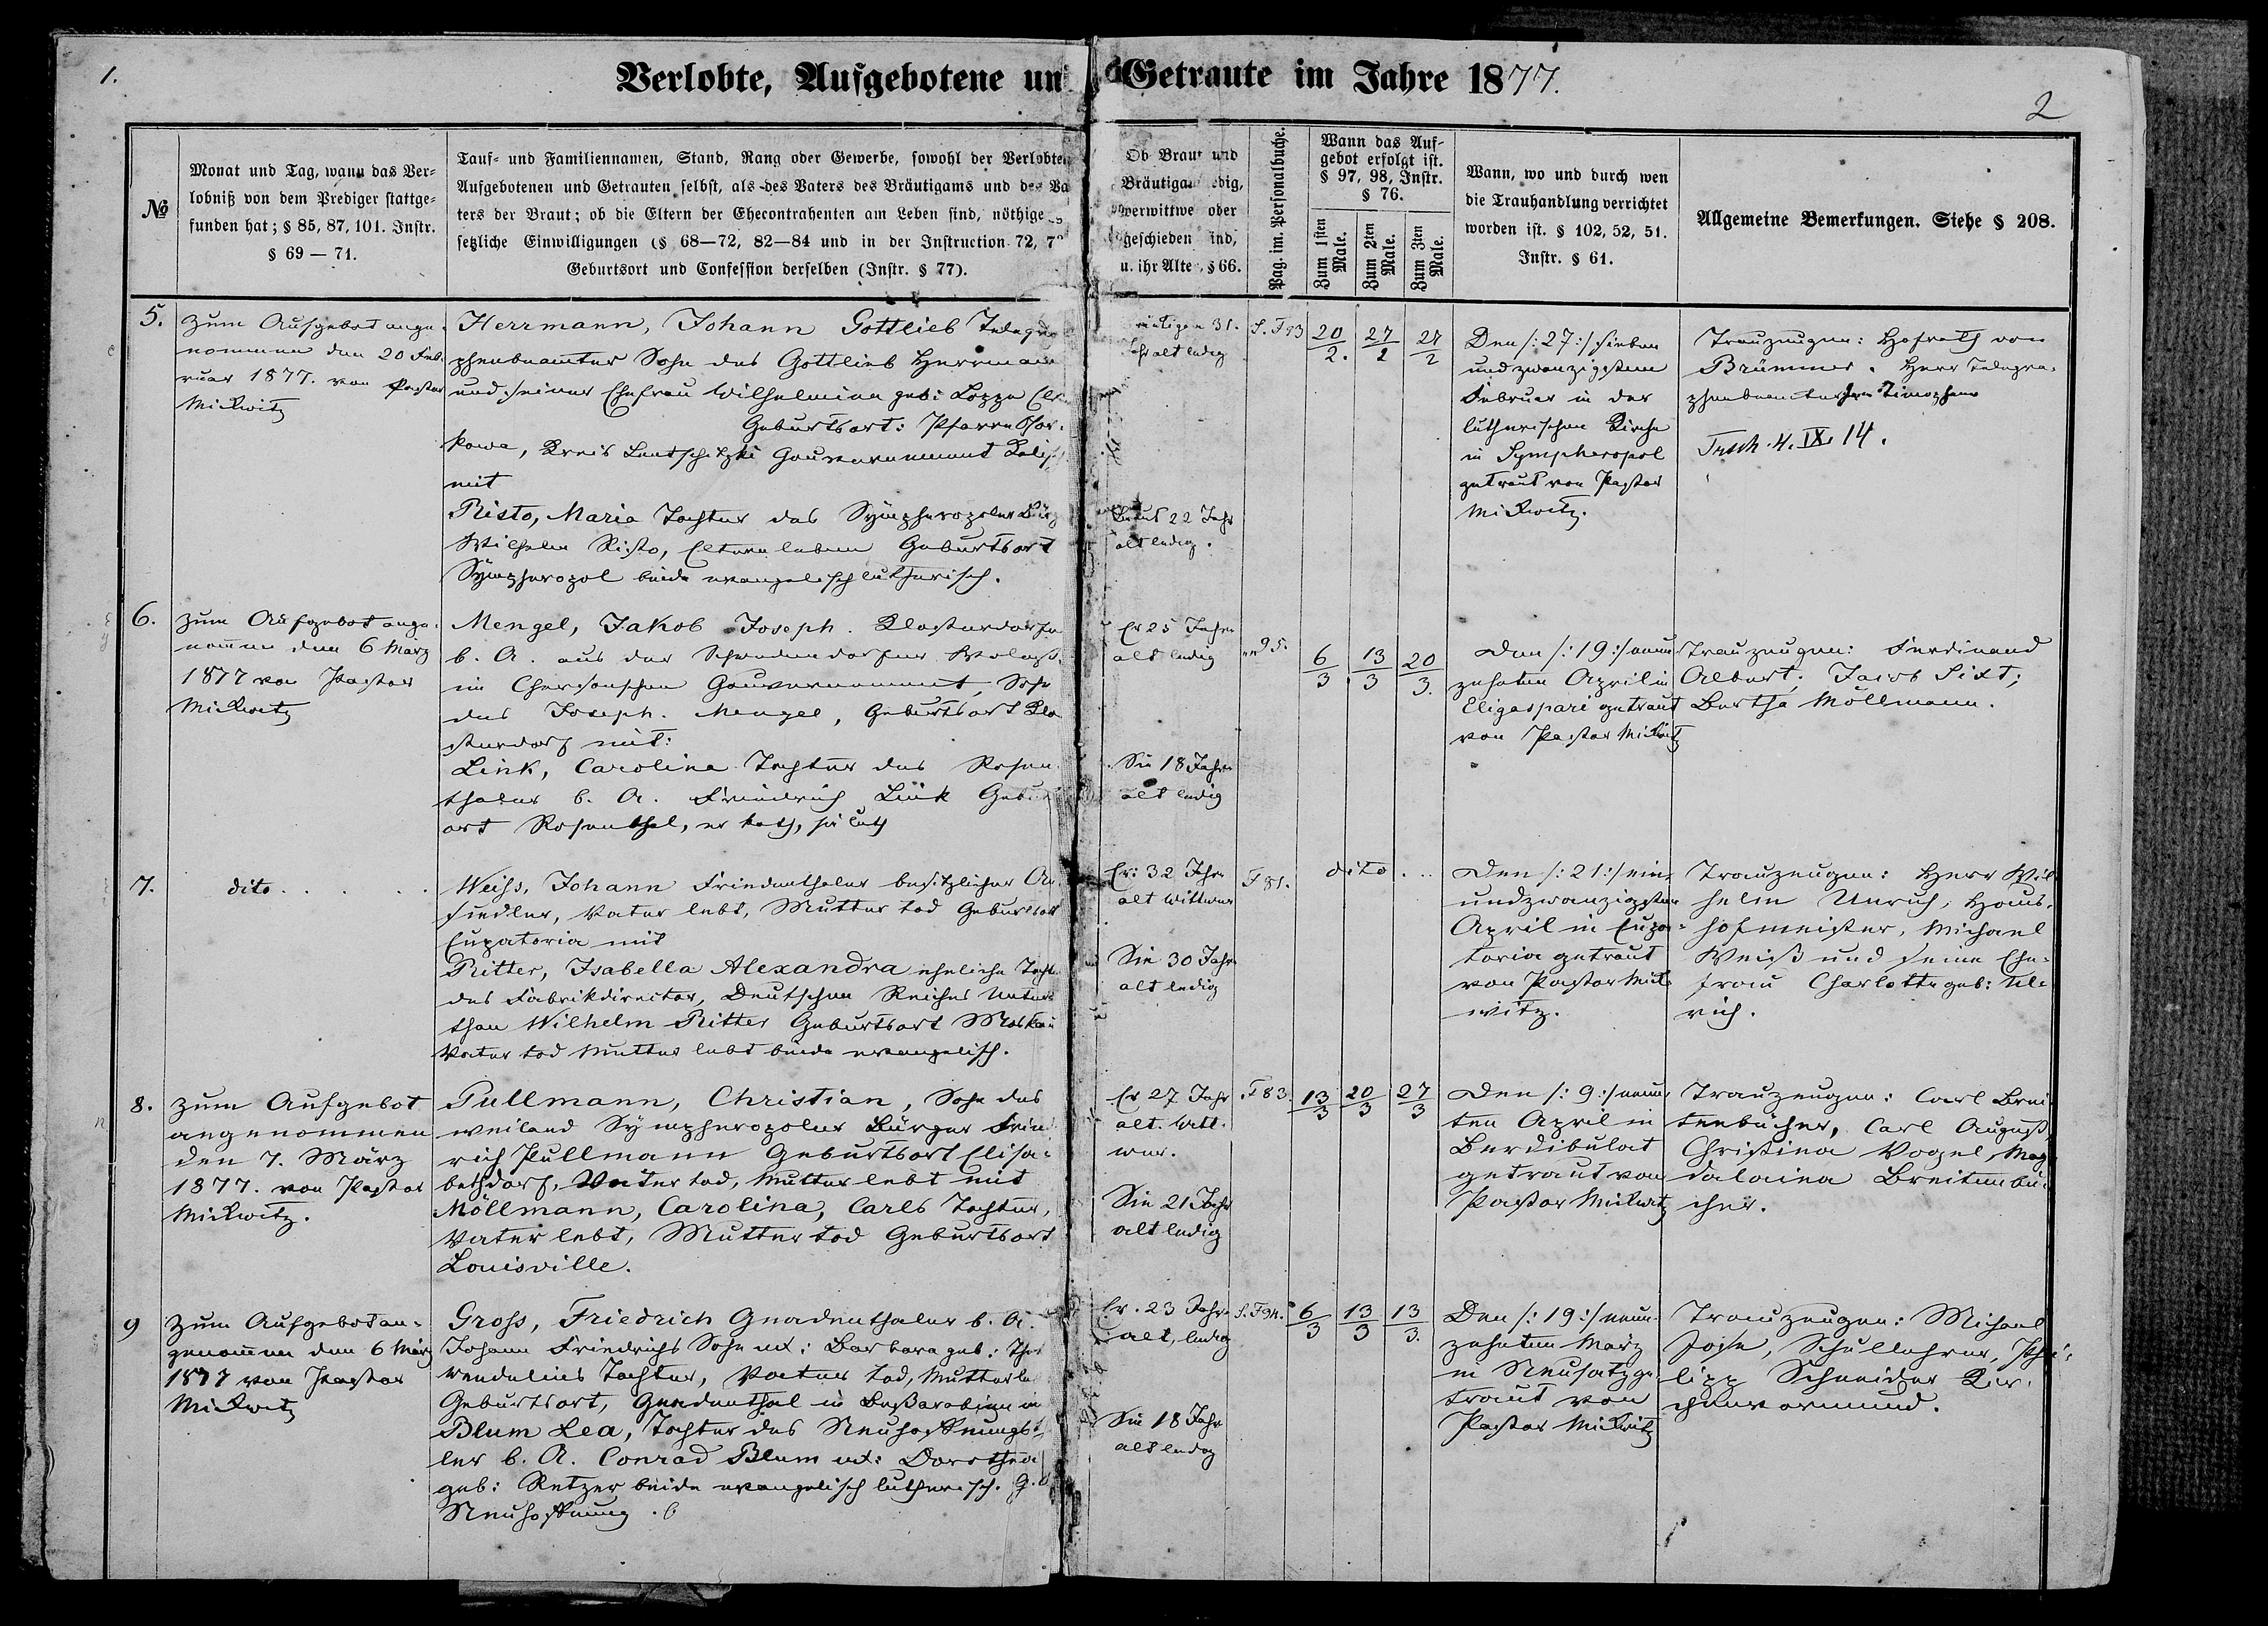 1.
Verlobte, Aufgebotene und Getraute im Jahre 1877.
2
№
Monat und Tag, wann das Ver-
lobniß von dem Prediger stattge-
funden hat; § 85, 87, 101. Instr.
§ 69 — 71.
Tauf- und Familiennamen, Stand, Rang oder Gewerbe, sowohl der Verlobten
Aufgebotenen und Getrauten selbst, als des Vaters des Bräutigams und des Va
ters der Braut; ob die Eltern der Ehecontrahenten am Leben sind, nöthige
setzliche Einwilligungen (§ 68—72, 82—84 und in der Instruction 72, 7
Geburtsort und Confession derselben (Instr. § 77).
Ob Braut und
Bräutigam edig,
verwittwe oder
geschieden ind,
u. ihr Alte , § 66.
Pag. im. Personalbuche.
Wann das Auf-
gebot erfolgt ist.
§ 97, 98, Instr.
§ 76.
Zum 1sten
Male.
Zum 2ten
Male.
Zum 3ten
Male.
Wann, wo und durch wen
die Trauhandlung verrichtet
worden ist. § 102, 52, 51.
Instr. § 61.
Allgemeine Bemerkungen. Siehe § 208.
5.
Zum Aufgebot ange-
nommen den 20 Feb-
ruar 1877. von Pastor
Mickwitz
Herrmann, Johann Gottlieb Telegra
phenbeamter Sohn des Gottlieb Herrmann
und seiner Ehefrau Wilhelmina geb:
Geburtsort: Pfarre
kowa, Kreis Lentschitzki Gouvernement Kalisch
mit
Risto, Maria Tochter des Sympheropoler Bürg
Wilhelm Risto, Eltern leben Geburtsort
Sympheropol beide evangelisch lutherisch.
31.
alt ledig
Braut 22 Jahr
alt ledig.
20/2. 27/2 27/2
Den /: 27 :/ sieben
und zwanzigsten
Februar in der
lutherischen Kirche
in Sympheropol
getraut von Pastor
Mickwitz.
Trauzeugen: Hofrath von
Brümmer. Herr Telegra-
phenbeamter
Trsch. 4. IX. 14.
6.
Zum Aufgebot ange-
nommen den 6 März
1877 von Pastor
Mickwitz
Mengel, Jakob Joseph. Klosterdorfer
b. A. aus der Schwedendorfer Wolost
im Chersonschen Gouvernement, Sohn
des Joseph. Mengel, Geburtsort Klo
sterdorf mit:
Link, Carolina Tochter des Rosen
thaler b. A. Friedrich Link Geburts
ort Rosenthal, er kath, sie luth
Er 25 Jahre
alt ledig
Sie 18 Jahre
alt ledig
95.
6/3 13/3 20/3.
Den /: 19 :/ neun
zehnten April in
Eligaspari getraut
von Pastor Mickwitz
Trauzeugen: Ferdinand
Albert; Jacob Sixt;
Bertha Möllmann.
7.
dito . . . .
Weiss, Johann Friedenthaler besitzlicher An
siedler, Vater lebt, Mutter tod Geburtsort
Eupatoria mit
Ritter, Isabella Alexandra eheliche Tocht
des Fabrikdirector, Deutschen Reiches Unter
than Wilhelm Ritter Geburtsort Moskau
Vater tod Mutter lebt beide evangelisch.
Er: 32 Jahre
alt Wittwer
Sie 30 Jahre
alt ledig
F 81.
dito . . .
Den /: 21 :/ ein
undzwanzigsten
April in Eupa-
toria getraut
von Pastor Mick
witz.
Trauzeugen: Herr Wil
helm Unruh, Haus-
hofmeister, Michael
Weiß und seine Ehe-
frau Charlotte geb: Ul-
rich.
8.
Zum Aufgebot
angenommen
den 7. März
1877. von Pastor
Mickwitz.
Pullmann, Christian, Sohn des
weiland Sympheropoler Bürger Fried
rich Pullmann Geburtsort Elisa-
bethdorf, Vater tod, Mutter lebt mit
Möllmann, Carolina, Carls Tochter,
Vater lebt, Mutter tod Geburtsort
Louisville.
Er 27 Jahr
alt. Witt-
wer.
Sie 21 Jahr
alt ledig
F 83.
13/3 20/3 27/3
Den /: 9 :/ neun
ten April in
Berdibulat
getraut von
Pastor Mickwitz
Trauzeugen: Carl Brei
tenbücher, Carl August,
Christina Vogel, Mag
dalaina Breitenbü-
cher.
9
Zum Aufgebot an-
genommen den 6 März
1877 von Pastor
Mickwitz
Gross, Friedrich Gnadenthaler b. A.
Johann Friedrichs Sohn ux: Barbara geb:
wendelins Tochter, Vater tod, Mutter le
Geburtsort, Gnadenthal in Bessarabien
Blum Lea, Tochter des Neuhoffnungst-
ler b. A. Conrad Blum ux: Dorothea
geb: Retzer beide evangelisch lutherisch. G.
Neuhoffnung.
Er. 23 Jahre
alt, ledig
Sie 18 Jahr
alt ledig
S. F 94.
6/3 13/3 13/3.
Den /: 19 :/ neun-
zehnten März
in Neusatz ge-
traut von
Pastor Mickwitz
Trauzeugen: Michael
Schullehrer, Phi-
lipp Schneider Kir-
chenvormund.